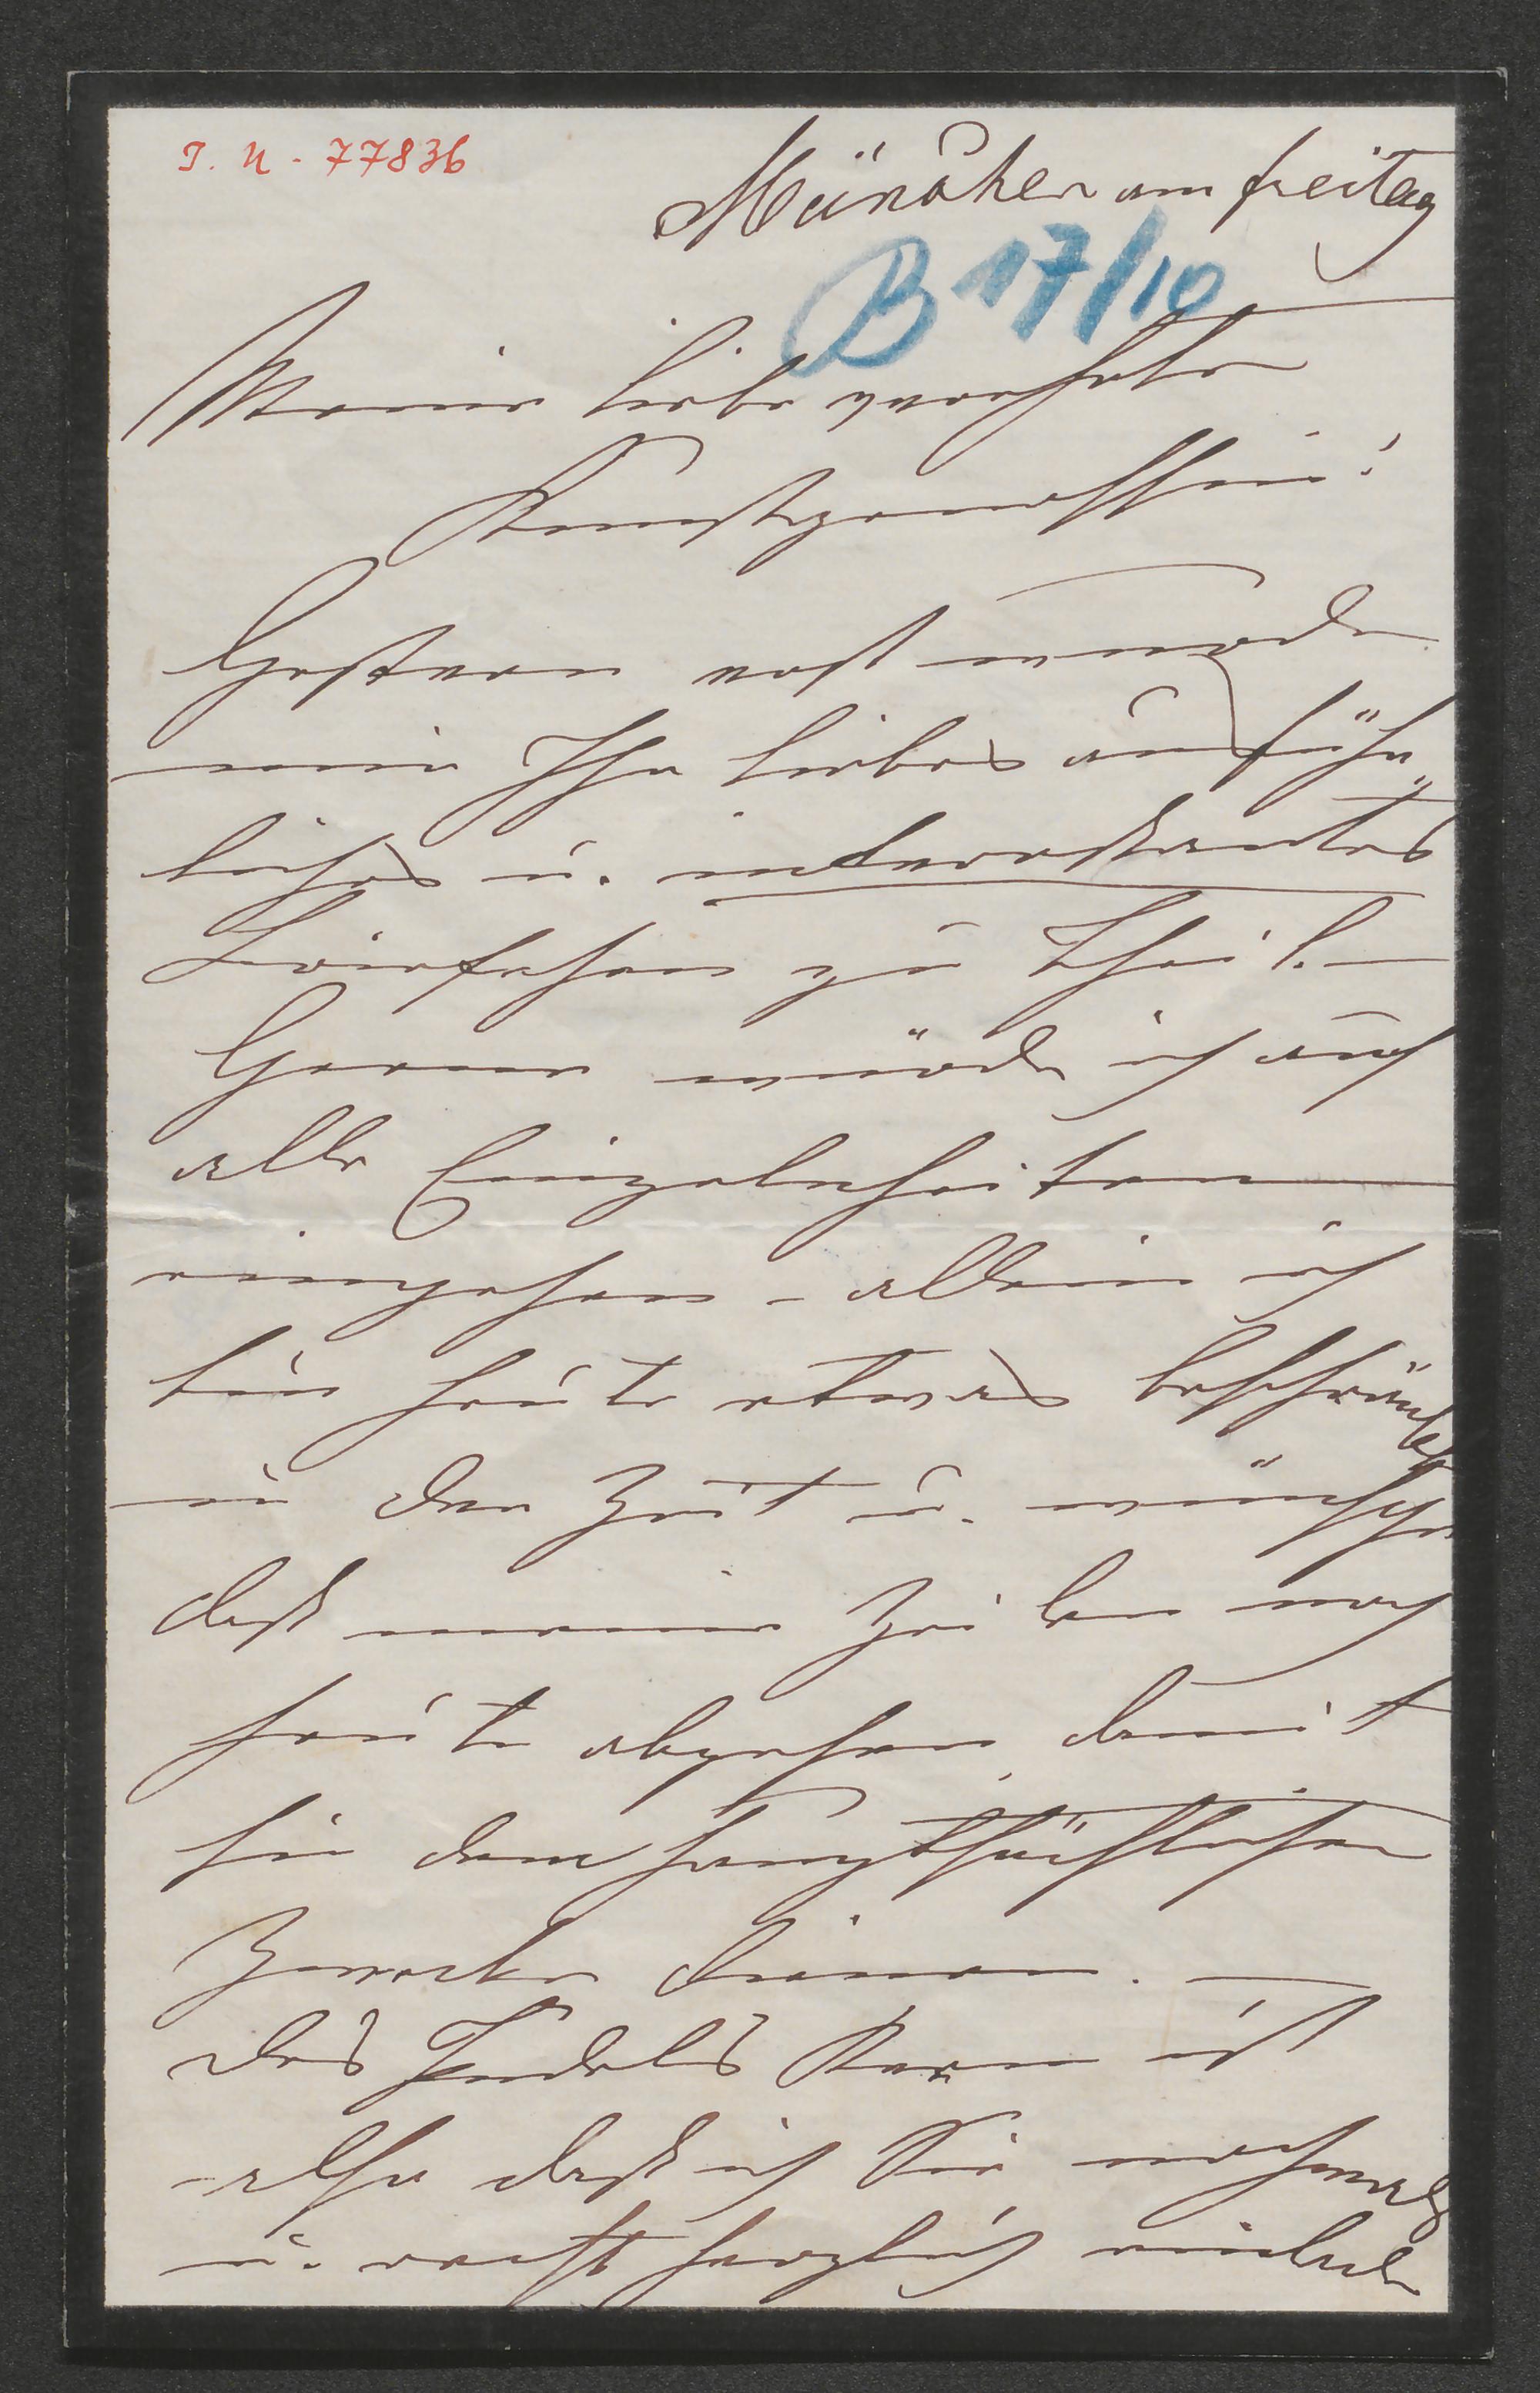 I. N. 77836
München am freitag
B 17/10
Meine liebe verehrte
Kunstgenossin!
Gestern erst wurde
mir Ihr liebes ausführ„
liches u. interessantes
Briefchen zu Theil. –
Gerne würde ich auf
alle Einzelnheiten
eingehen – allein ich
bin heute etwas beschränkt
in der Zeit u. wünsche
daß meine Zeilen noch
heute abgehen, damit
sie dem hauptsächlichen
Zwecke dienen. –
Des Pudels Kern ist
also daß ich Sie nochmals
u. recht herzlich einlade